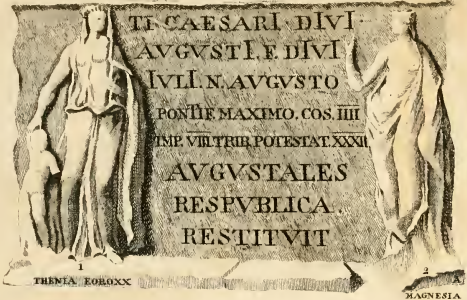 TI. CAESARI. DIVI
AVGVSTI. F. DIVI
IVLI. N. AVGVSTO
PONTIF. MAXIMO. COS. IIII
IMP. VIII. TRIB. POTESTAT. XXXII
AVGVSTALES
RESPVBLICA.
RESTITVIT
1
2
THENIA EOROXX
A
MAGNESIA